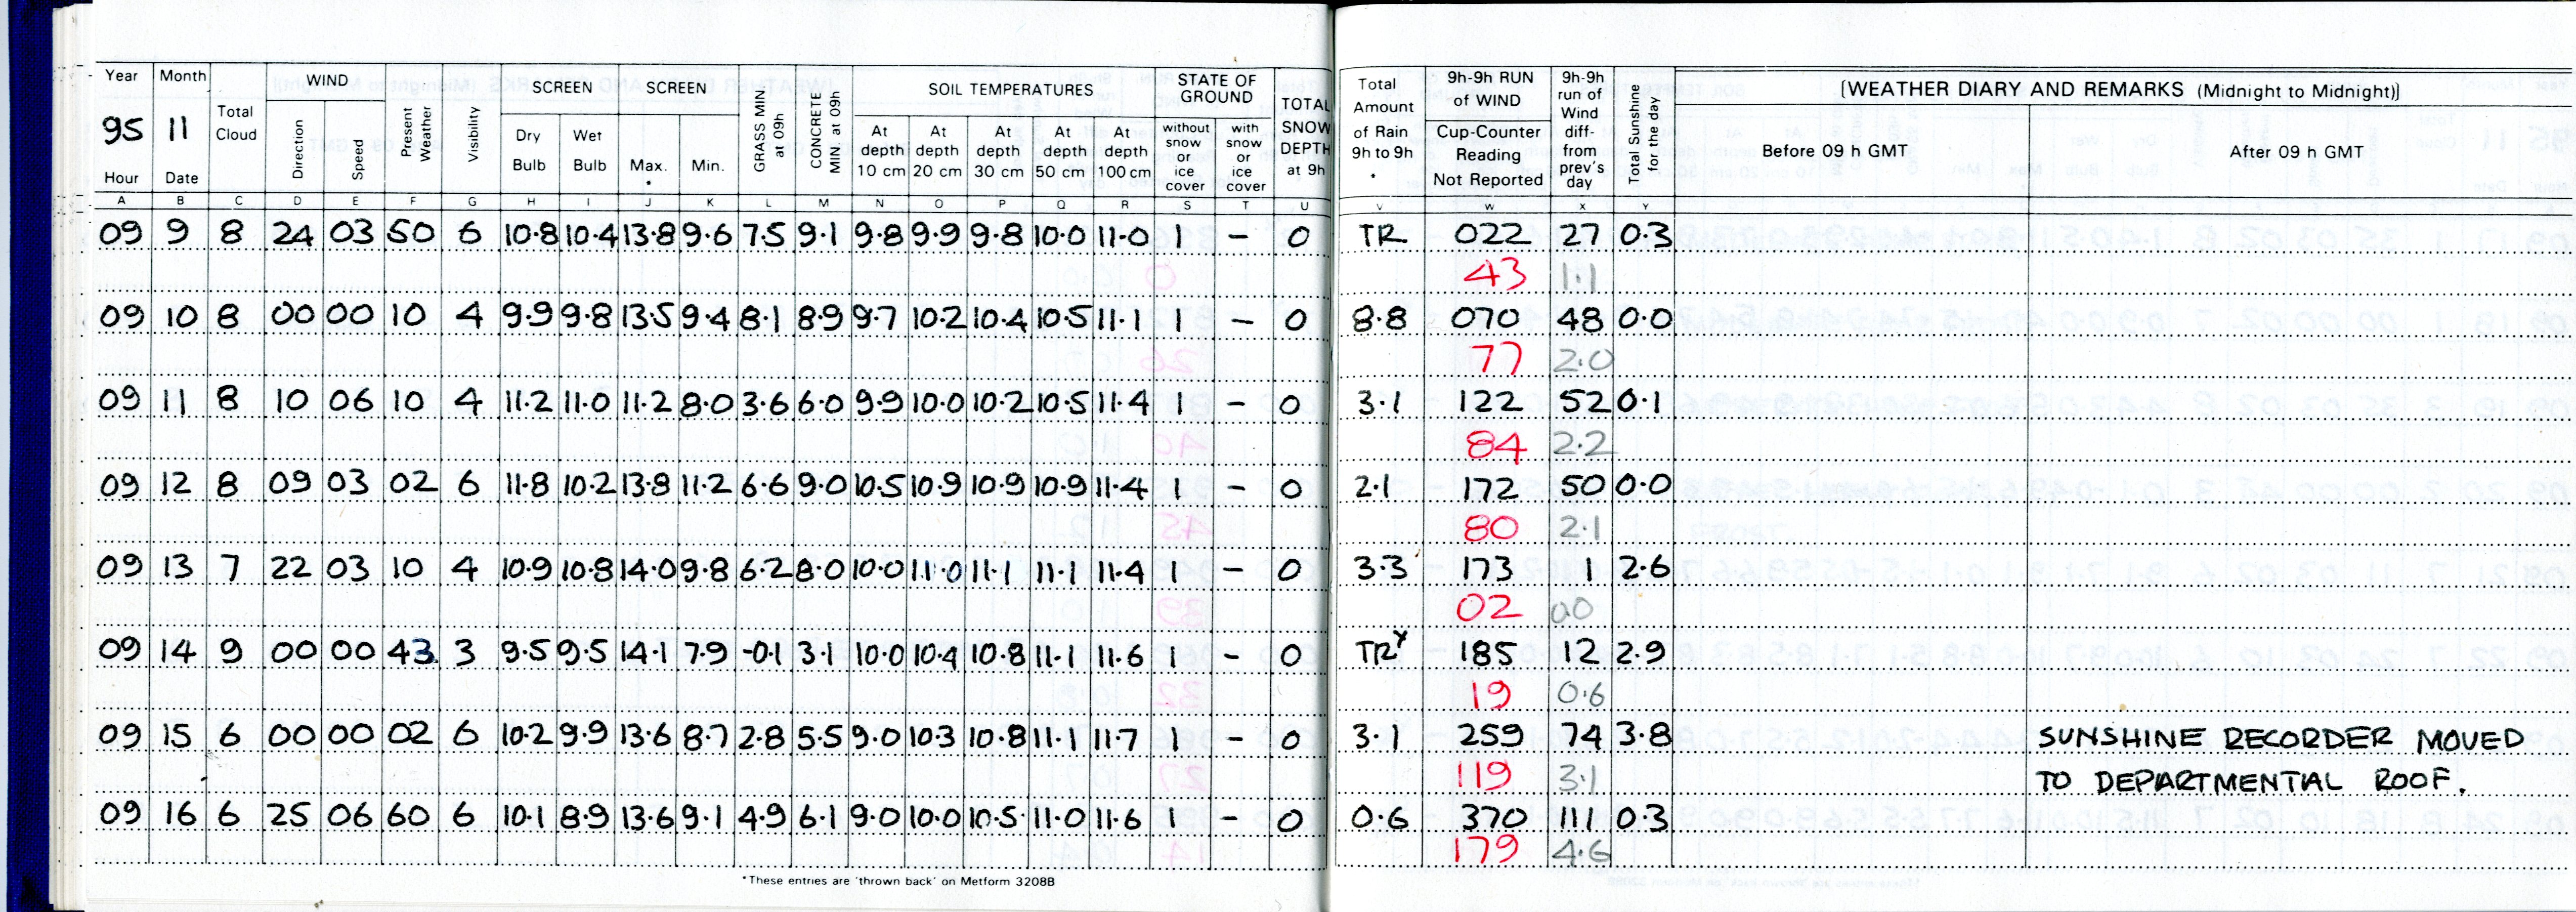 Year Month WIND SCREEN SCREEN SOIL TEMPERATURES STATE OF GROUND
95 11 Total Cloud Direction Speed Present Weather Visibility Dry Bulb Wet Bulb Max. * Min. GRASS MIN at 09h CONCRETE MIN at 09h At depth 10 cm At depth 20 cm At depth 30 cm At depth 50 cm At depth 100 cm without snow or ice cover with snow or ice cover TOTAL SNOW DEPTH at 9h
Hour Date
Total Amount of Rain 9h to 9h * 9h-9h RUN of WIND Cup-Counter Reading Not Reported 9h-9h run of Wind diff- from prev's day Total Sunshine for the day [WEATHER DIARY AND REMARKS (Midnight to Midnight)]
Before 09 h GMT After 09 h GMT
A B C D E F G H I J K L M N O P Q R S T U V W X Y
09 9 8 24 03 50 6 10.8 10.4 13.8 9.6 7.5 9.1 9.8 9.9 9.8 10.0 11.0 1 – 0 TR 022 27 0.3
43 1.1
09 10 8 00 00 10 4 9.9 9.8 13.5 9.4 8.1 8.9 9.7 10.2 10.4 10.5 11.1 1 – 0 8.8 070 48 0.0
77 2.0
09 11 8 10 06 10 4 11.2 11.0 11.2 8.0 3.6 6.0 9.9 10.0 10.2 10.5 11.4 1 – 0 3.1 122 52 0.1
84 2.2
09 12 8 09 03 02 6 11.8 10.2 13.8 11.2 6.6 9.0 10.5 10.9 10.9 10.9 11.4 1 – 0 2.1 172 50 0.0
80 2.1
09 13 7 22 03 10 4 10.9 10.8 14.0 9.8 6.2 8.0 10.0 11.0 11.1 11.1 11.4 1 – 0 3.3 173 1 2.6
02 0.0
09 14 9 00 00 43 3 9.5 9.5 14.1 7.9 -0.1 3.1 10.0 10.4 10.8 11.1 11.6 1 – 0 TRY 185 12 2.9
19 0.6
09 15 6 00 00 02 6 10.2 9.9 13.6 8.7 2.8 5.5 9.0 10.3 10.8 11.1 11.7 1 – 0 3.1 259 74 3.8 SUNSHINE RECORDER MOVED
119 3.1 TO DEPARTMENTAL ROOF.
09 16 6 25 06 60 6 10.1 8.9 13.6 9.1 4.9 6.1 9.0 10.0 10.5 11.0 11.6 1 – 0 0.6 370 111 0.3
179 4.6
*These entries are 'thrown back' on Metform 3208B